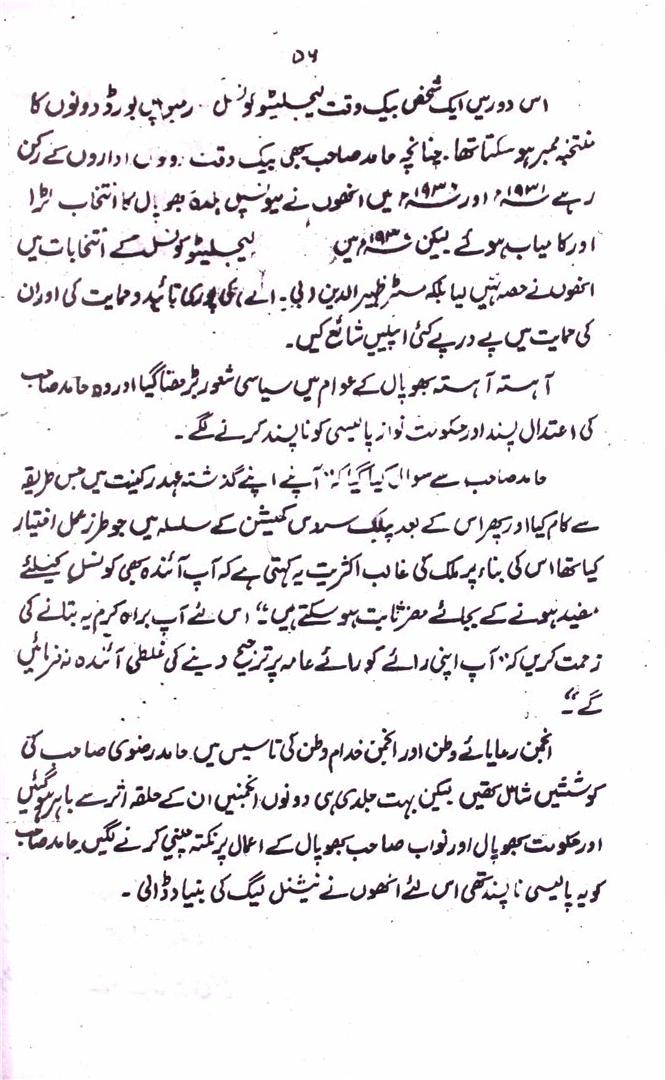 ۵۶
اس دور میں ایک شخص بیک وقت لیجسلیٹو کونسل بورڈ دونوں کا
منتخبہ ممبر ہو سکتا تھا۔ چنانچہ حامد صاحب بھی بیک وقت دونوں اداروں کے رکن
رہے ۱۹۳۱ء اور ۱۹۳۶ء میں انھوں نے میونسپل بلدہ بھوپال کا انتخاب لڑا
اور کامیاب ہوئے لیکن میں لیجسلیٹو کونسل کے انتخابات میں
انھوں نے حصہ نہیں لیا بلکہ مسٹر ظہیر الدین (بی۔ اے) کی پوری تائید و حمایت کی اور ان
کی حمایت میں پے در پے کئی اپیلیں شائع کیں۔
آہستہ آہستہ بھوپال کے عوام میں سیاسی شعور بڑھتا گیا اور وہ حامد صاحب
کی اعتدال پسند اور حکومت نواز پالیسی کو ناپسند کرنے لگے۔
حامد صاحب سے سوال کیا گیا کہ "آپنے اپنے گذشتہ عہد رکنیت میں جس طریقہ
سے کام کیا اور پھر اس کے بعد پبلک سروس کمیشن کے سلسلہ میں جو طرز عمل اختیار
کیا تھا اس کی بناء پر ملک کی غالب اکثریت یہ کہتی ہے کہ آپ آئندہ بھی کونسل کیلئے
مفید ہونے کے بجائے مضر ثابت ہو سکتے ہیں"۔ اس لئے آپ براہ کرم یہ بتانے کی
زحمت کریں کہ "آپ اپنی رائے کو رائے عامہ پر ترجیح دینے کی غلطی آئندہ نہ فرمائیں
گے"۔
انجمن رعایائے وطن اور انجمن خدام وطن کی تاسیس میں حامد رضوی صاحب کی
کوششیں شامل تھیں لیکن بہت جلدی ہی دونوں انجمنیں ان کے حلقہ اثر سے باہر ہو گئیں
اور حکومت بھوپال اور نواب صاحب بھوپال کے اعمال پر نکتہ چینی کرنے لگیں۔ حامد صاحب
کو یہ پالیسی ناپسند تھی اس لئے انھوں نے نیشنل لیگ کی بنیاد ڈالی۔